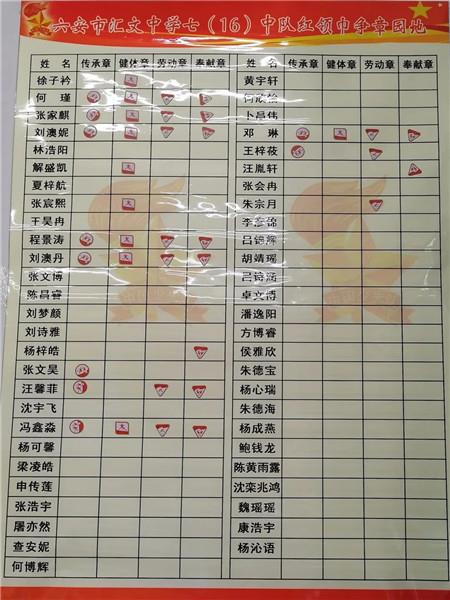 六安市汇文中学七（16）中队红领巾争章园地
姓 名 传承章 健体章 劳动章 奉献章 姓 名 传承章 健体章 劳动章 奉献章
徐子衿 黄宇轩
何 瑾 何欣
张家麒 卜昌伟
刘澳妮 邓 琳
林浩阳 王梓莜
解盛凯 汪胤轩
夏梓航 张会冉
张宸熙 朱宗月
王昊冉 李彦锦
程景涛 吕锦辉
刘澳丹 胡靖瑶
张文博 吕锦涵
陈昌睿 卓文博
刘梦颜 潘逸阳
刘诗雅 方博睿
杨梓皓 侯雅欣
张文昊 朱德宝
汪馨菲 杨心瑞
沈宇飞 朱德海
冯鑫淼 杨成燕
杨可馨 鲍钱龙
梁凌皓 陈黄雨露
申传莲 沈栾兆鸿
张浩宇 魏瑶瑶
屠亦然 康浩宇
查安妮 杨沁语
何博辉